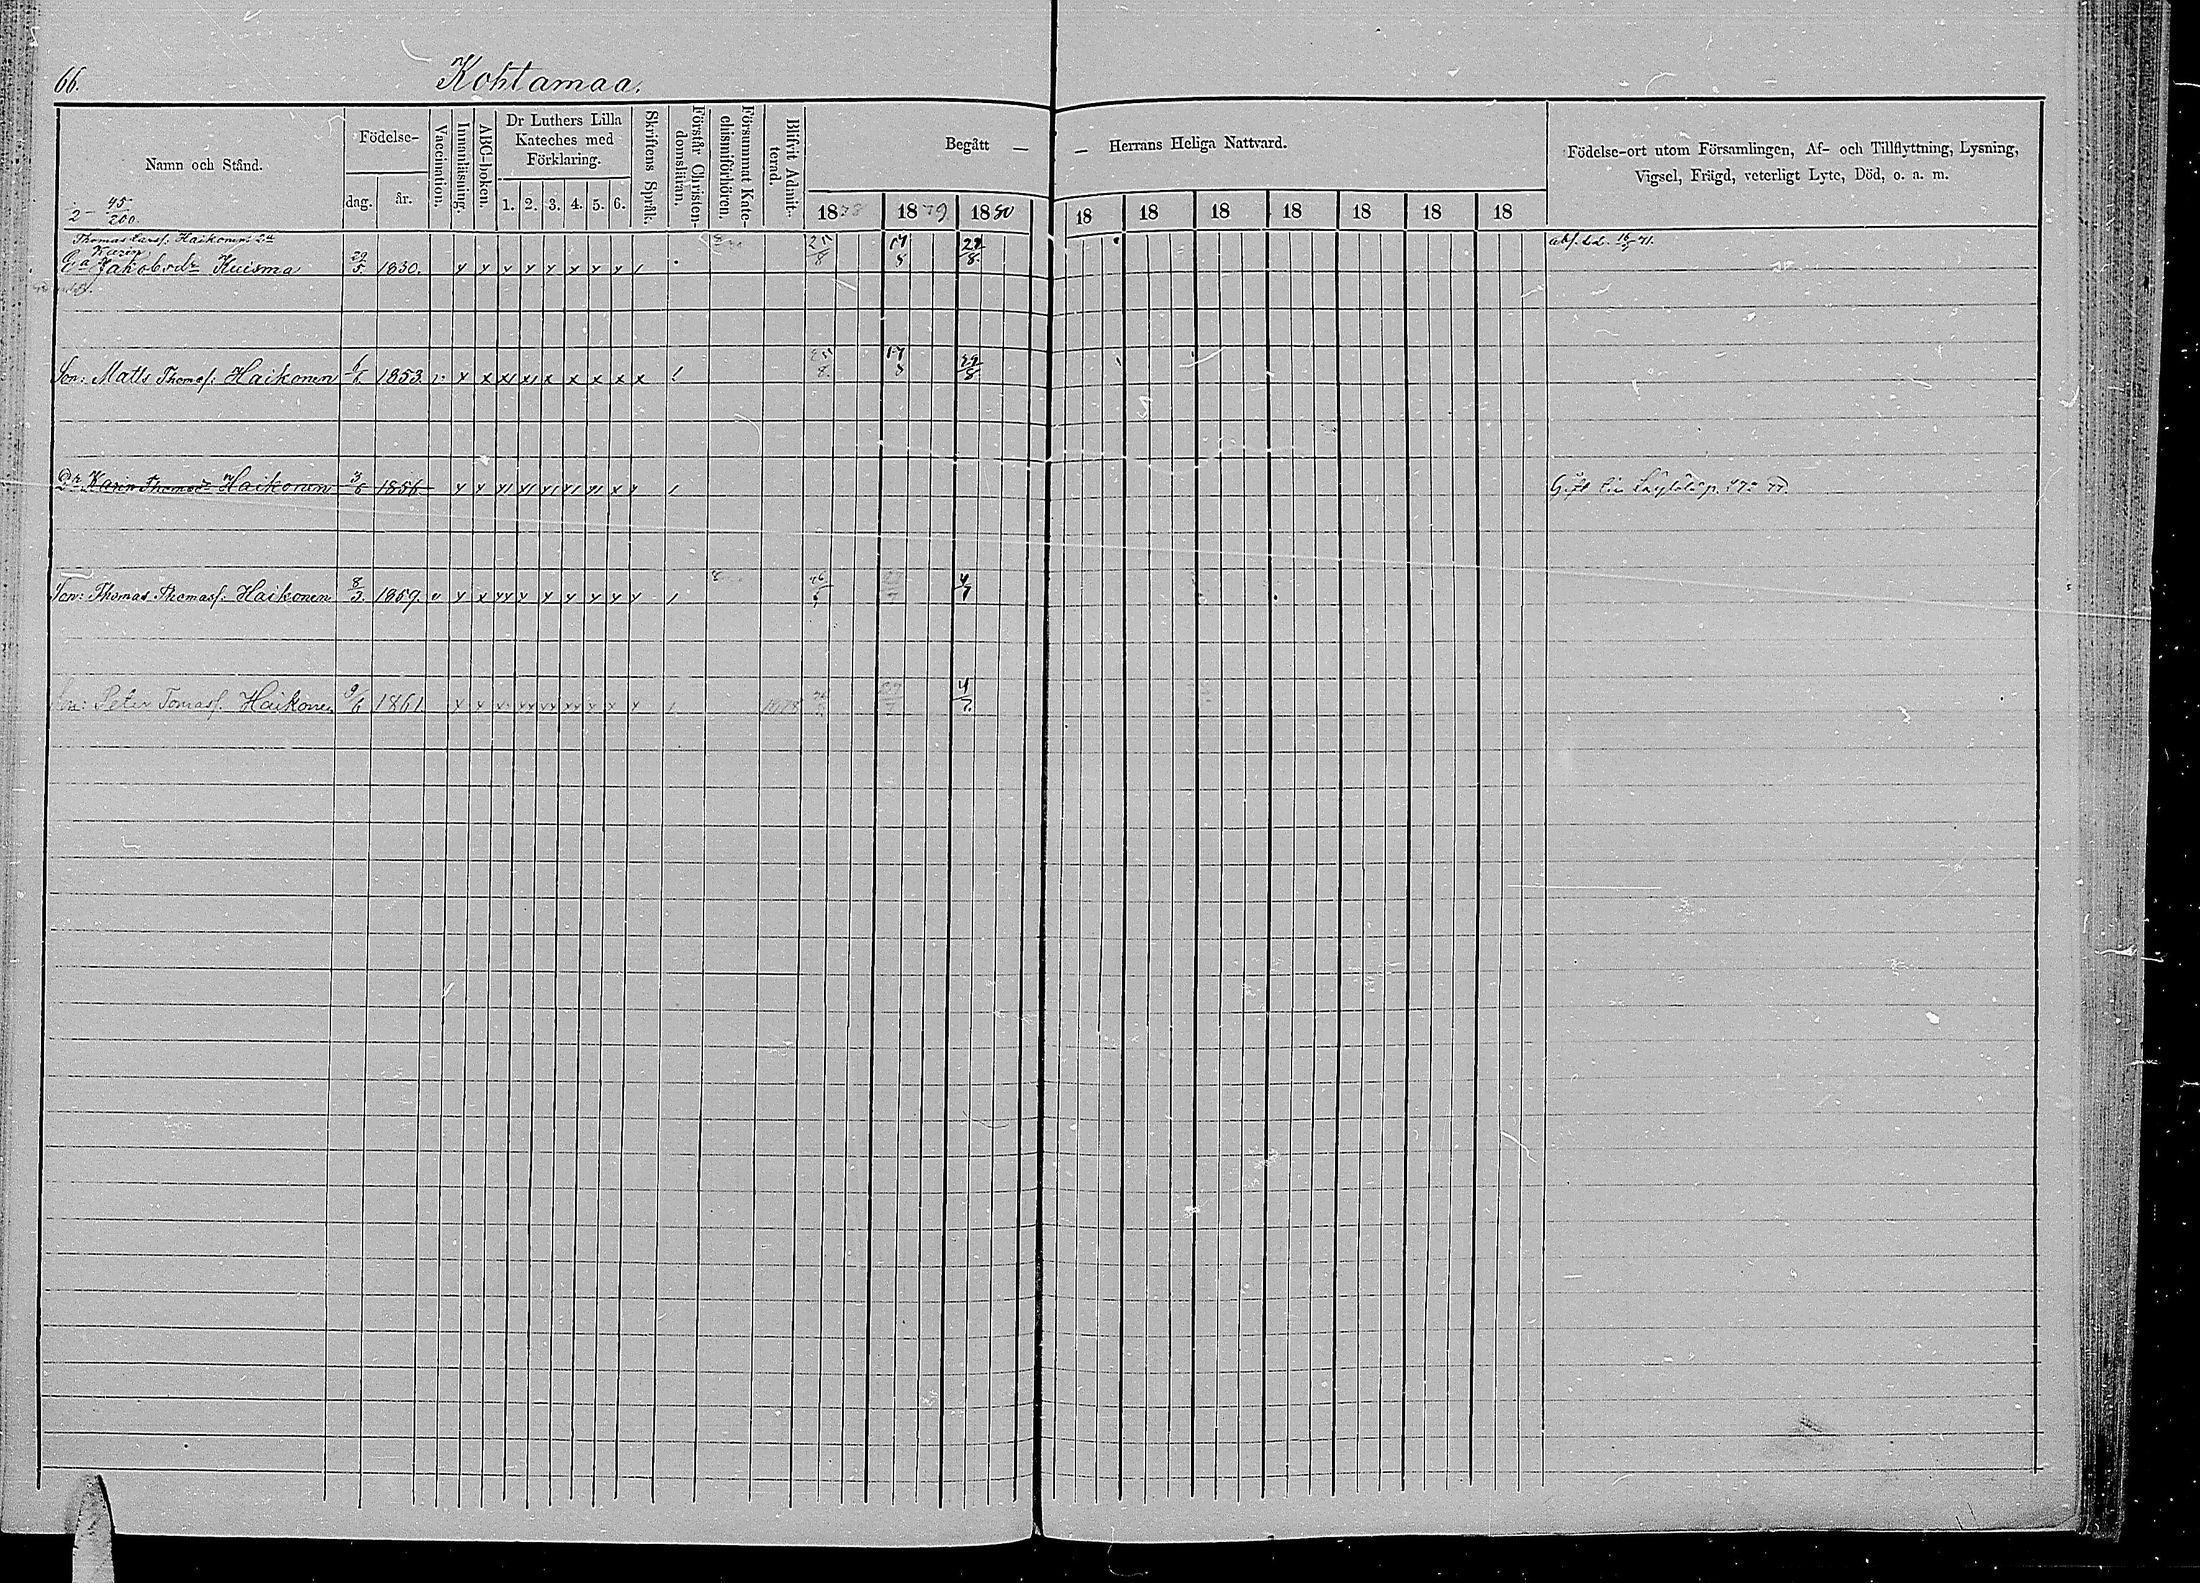 66. Kohtamaa.
Namn och Stånd.
Födelse-
dag. år.
Vaccination.
Innanläsning.
ABC-boken.
Dr Luthers Lilla
Kateches med
Förklaring.
1. 2. 3. 4. 5. 6.
Skriftens Språk.
Förstår Christen-
domsläran.
Försummat Kate-
chismiförhören.
Blifvit Admit-
terad.
Begått — — Herrans Heliga Nattvard.
1878 1879 1880 18 18 18 18 18 18 18
Födelse-ort utom Församlingen, Af- och Tillflyttning, Lysning,
Vigsel, Frägd, veterligt Lyte, Död, o. a. m.
2 - 45/200.
Thomas Larsf. Haikonens
Karin
Ea Jakobsdr Kuisma 29/5 1830. x x x x x x x x / 25/8 17/8 22/8
Son: Matts Thomasf. Haikonen 1/6 1853. v. x x x x x x x x x / 25/8 17/8 22/8
Dr. Karin Thomasdr Haikonen 3/6 1856 Gift
Son: Thomas Thomasf. Haikonen 8/3 1859. v x x 4/7
Son: Peter Tomasf. Haikonen 9/6 1861. 1878 4/7